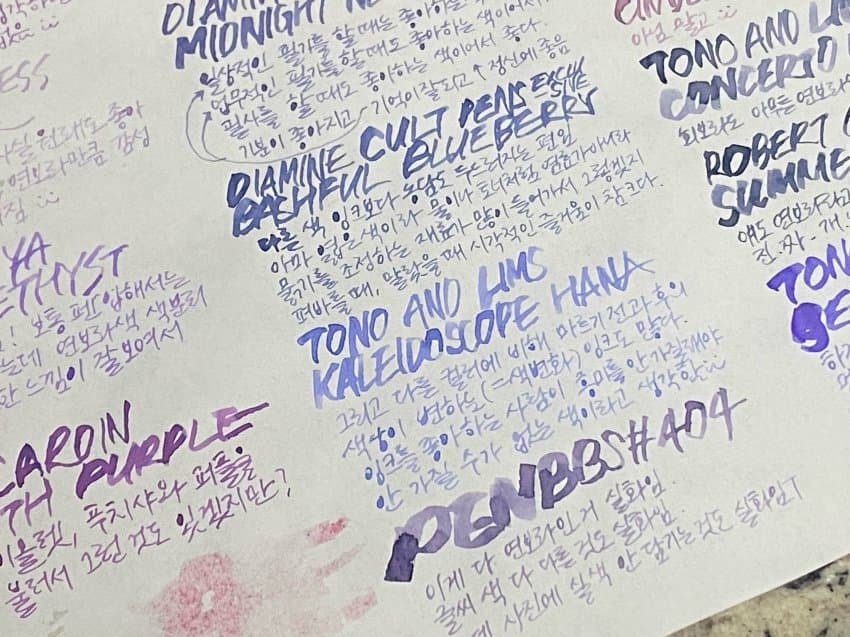 DIAMINE
MIDNIGHT
일상적인 필기를 할 때는 좋아하는 색이어서
업무적인 필기를 할 때도 좋아하는 색이어서 좋다.
필사를 할 때도
기분이 좋아지고 기억이 잘되고 정신에 좋음
DIAMINE CULT PENS EXCLUSIVE
BASHFUL BLUEBERRY
다른 색 잉크보다 농담도 두드러지는 편임
아마 옅은 색이라 물이나 토너처럼 염료가 아니라
묽기를 조정하는 재료가 많이 들어가서 그렇겠지
펴바를 때, 말랐을 때 시각적인 즐거움이 참 크다.
TONO AND LIMS
KALEIDOSCOPE HANA
그리고 다른 컬러에 비해 마르기 전과 후의
색상이 변하는(=색변화) 잉크도 많다.
잉크를 좋아하는 사람이 흥미를 안 가질래야
안 가질 수가 없는 색이라고 생각한
PENBBS#404
이게 다 연보라인 거 실화임.
글씨 색 다 다른 것도 실화임.
데 사진에 실색 안 담기는 것도 실화임
ESS
원래도 좋아
연보라만큼 감성
YA
ETHYST
! 보통 펜 압해서는
는데 연보라색 색분리
한 느낌이 잘 보여서
CARDIN
TH PURPLE
이올렛, 푸치샤와 퍼플을
불러서 그런 것도 있겠지만?
아님 말고
TONO AND LIMS
CONCERTO
회보라도 아무튼 연보라
ROBERT
SUMME
얘도 연보라라고
진.짜.개.
TONO